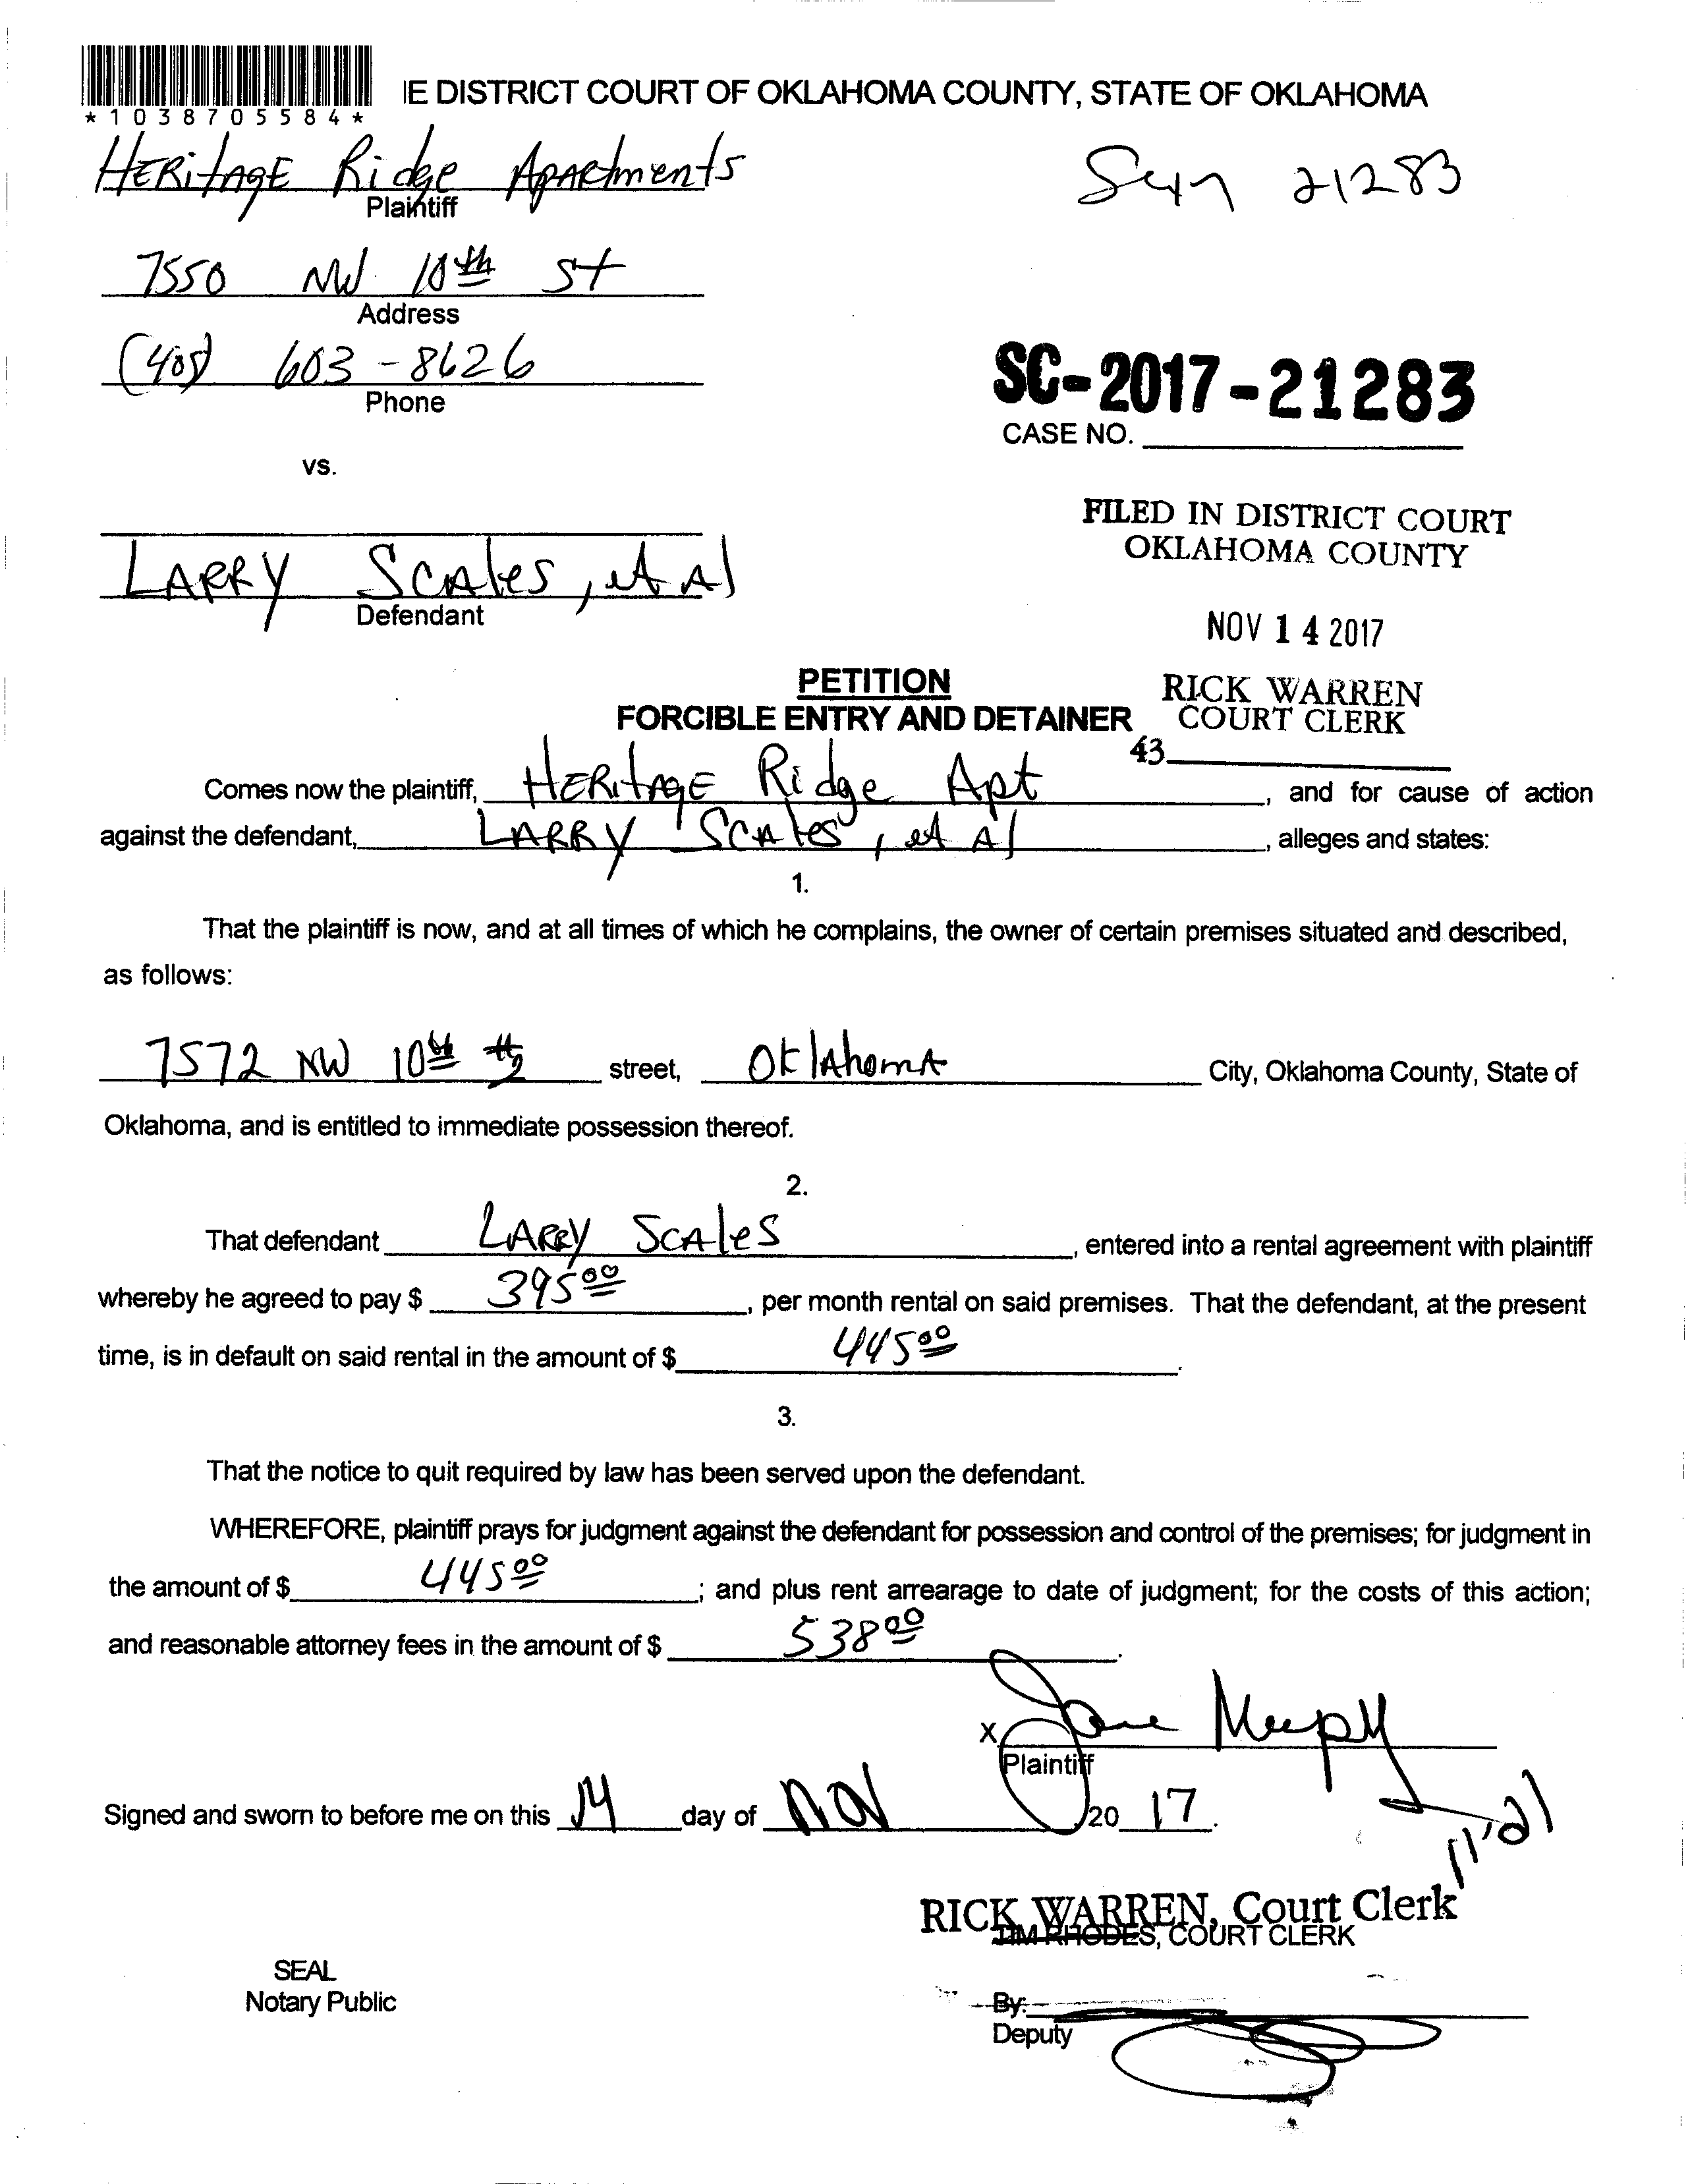 *1038705584*
IE DISTRICT COURT OF OKLAHOMA COUNTY, STATE OF OKLAHOMA
HERitAGE Ridge Apartments
21283
Plaintiff
7550 NW 10th St
Address
(405) 603-8626
Phone
SC-2017-21283
CASE NO.
vs.
FILED IN DISTRICT COURT
OKLAHOMA COUNTY
LARRY SCAles, et Al
Defendant
NOV 14 2017
PETITION
RICK WARREN
FORCIBLE ENTRY AND DETAINER
COURT CLERK
43
Comes now the plaintiff, HERitAGE Ridge Apt, and for cause of action
against the defendant, LARRY SCAles, et Al, alleges and states:
1.
That the plaintiff is now, and at all times of which he complains, the owner of certain premises situated and described,
as follows:
7572 NW 10th #2 street, OklAhomA City, Oklahoma County, State of
Oklahoma, and is entitled to immediate possession thereof.
2.
That defendant LARRY SCAleS, entered into a rental agreement with plaintiff
whereby he agreed to pay $ 395 00, per month rental on said premises. That the defendant, at the present
time, is in default on said rental in the amount of $ 445 00.
3.
That the notice to quit required by law has been served upon the defendant.
WHEREFORE, plaintiff prays for judgment against the defendant for possession and control of the premises; for judgment in
the amount of $ 445 00; and plus rent arrearage to date of judgment; for the costs of this action;
and reasonable attorney fees in the amount of $ 538 00.
X
Plaintiff
Signed and sworn to before me on this 14 day of NOV 20 17.
11/21
RICK WARREN, Court Clerk
TIM RHODES, COURT CLERK
SEAL
Notary Public
By:
Deputy